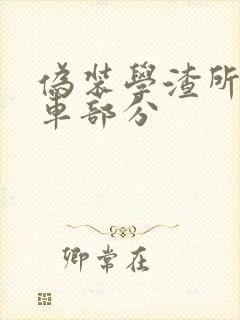 偽裝學渣所
車部分
卿常在